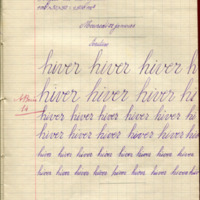 Mercredi 22 janvier
hiver hiver hiver h
hiver hiver hiver hi
hiver hiver hiver hiver hiver
hiver hiver hiver hiver hiver
hiver hiver hiver hiver hiver hiver hiver
hiver hiver hiver hiver hiver hiver hiver